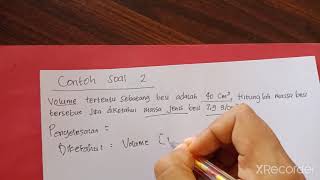 Contoh Soal 2
Volume tertentu sebatang besi adalah 40 cm³, Hitunglah massa besi
tersebut jika diketahui massa jenis besi 7,9 g/cm
Penyelesaian :
Diketahui : Volume (
XRecorder